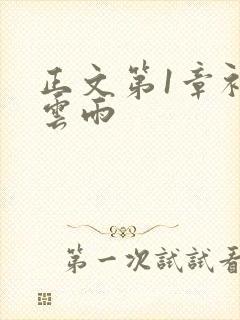 正文第1章
雲雨
第一次試試看